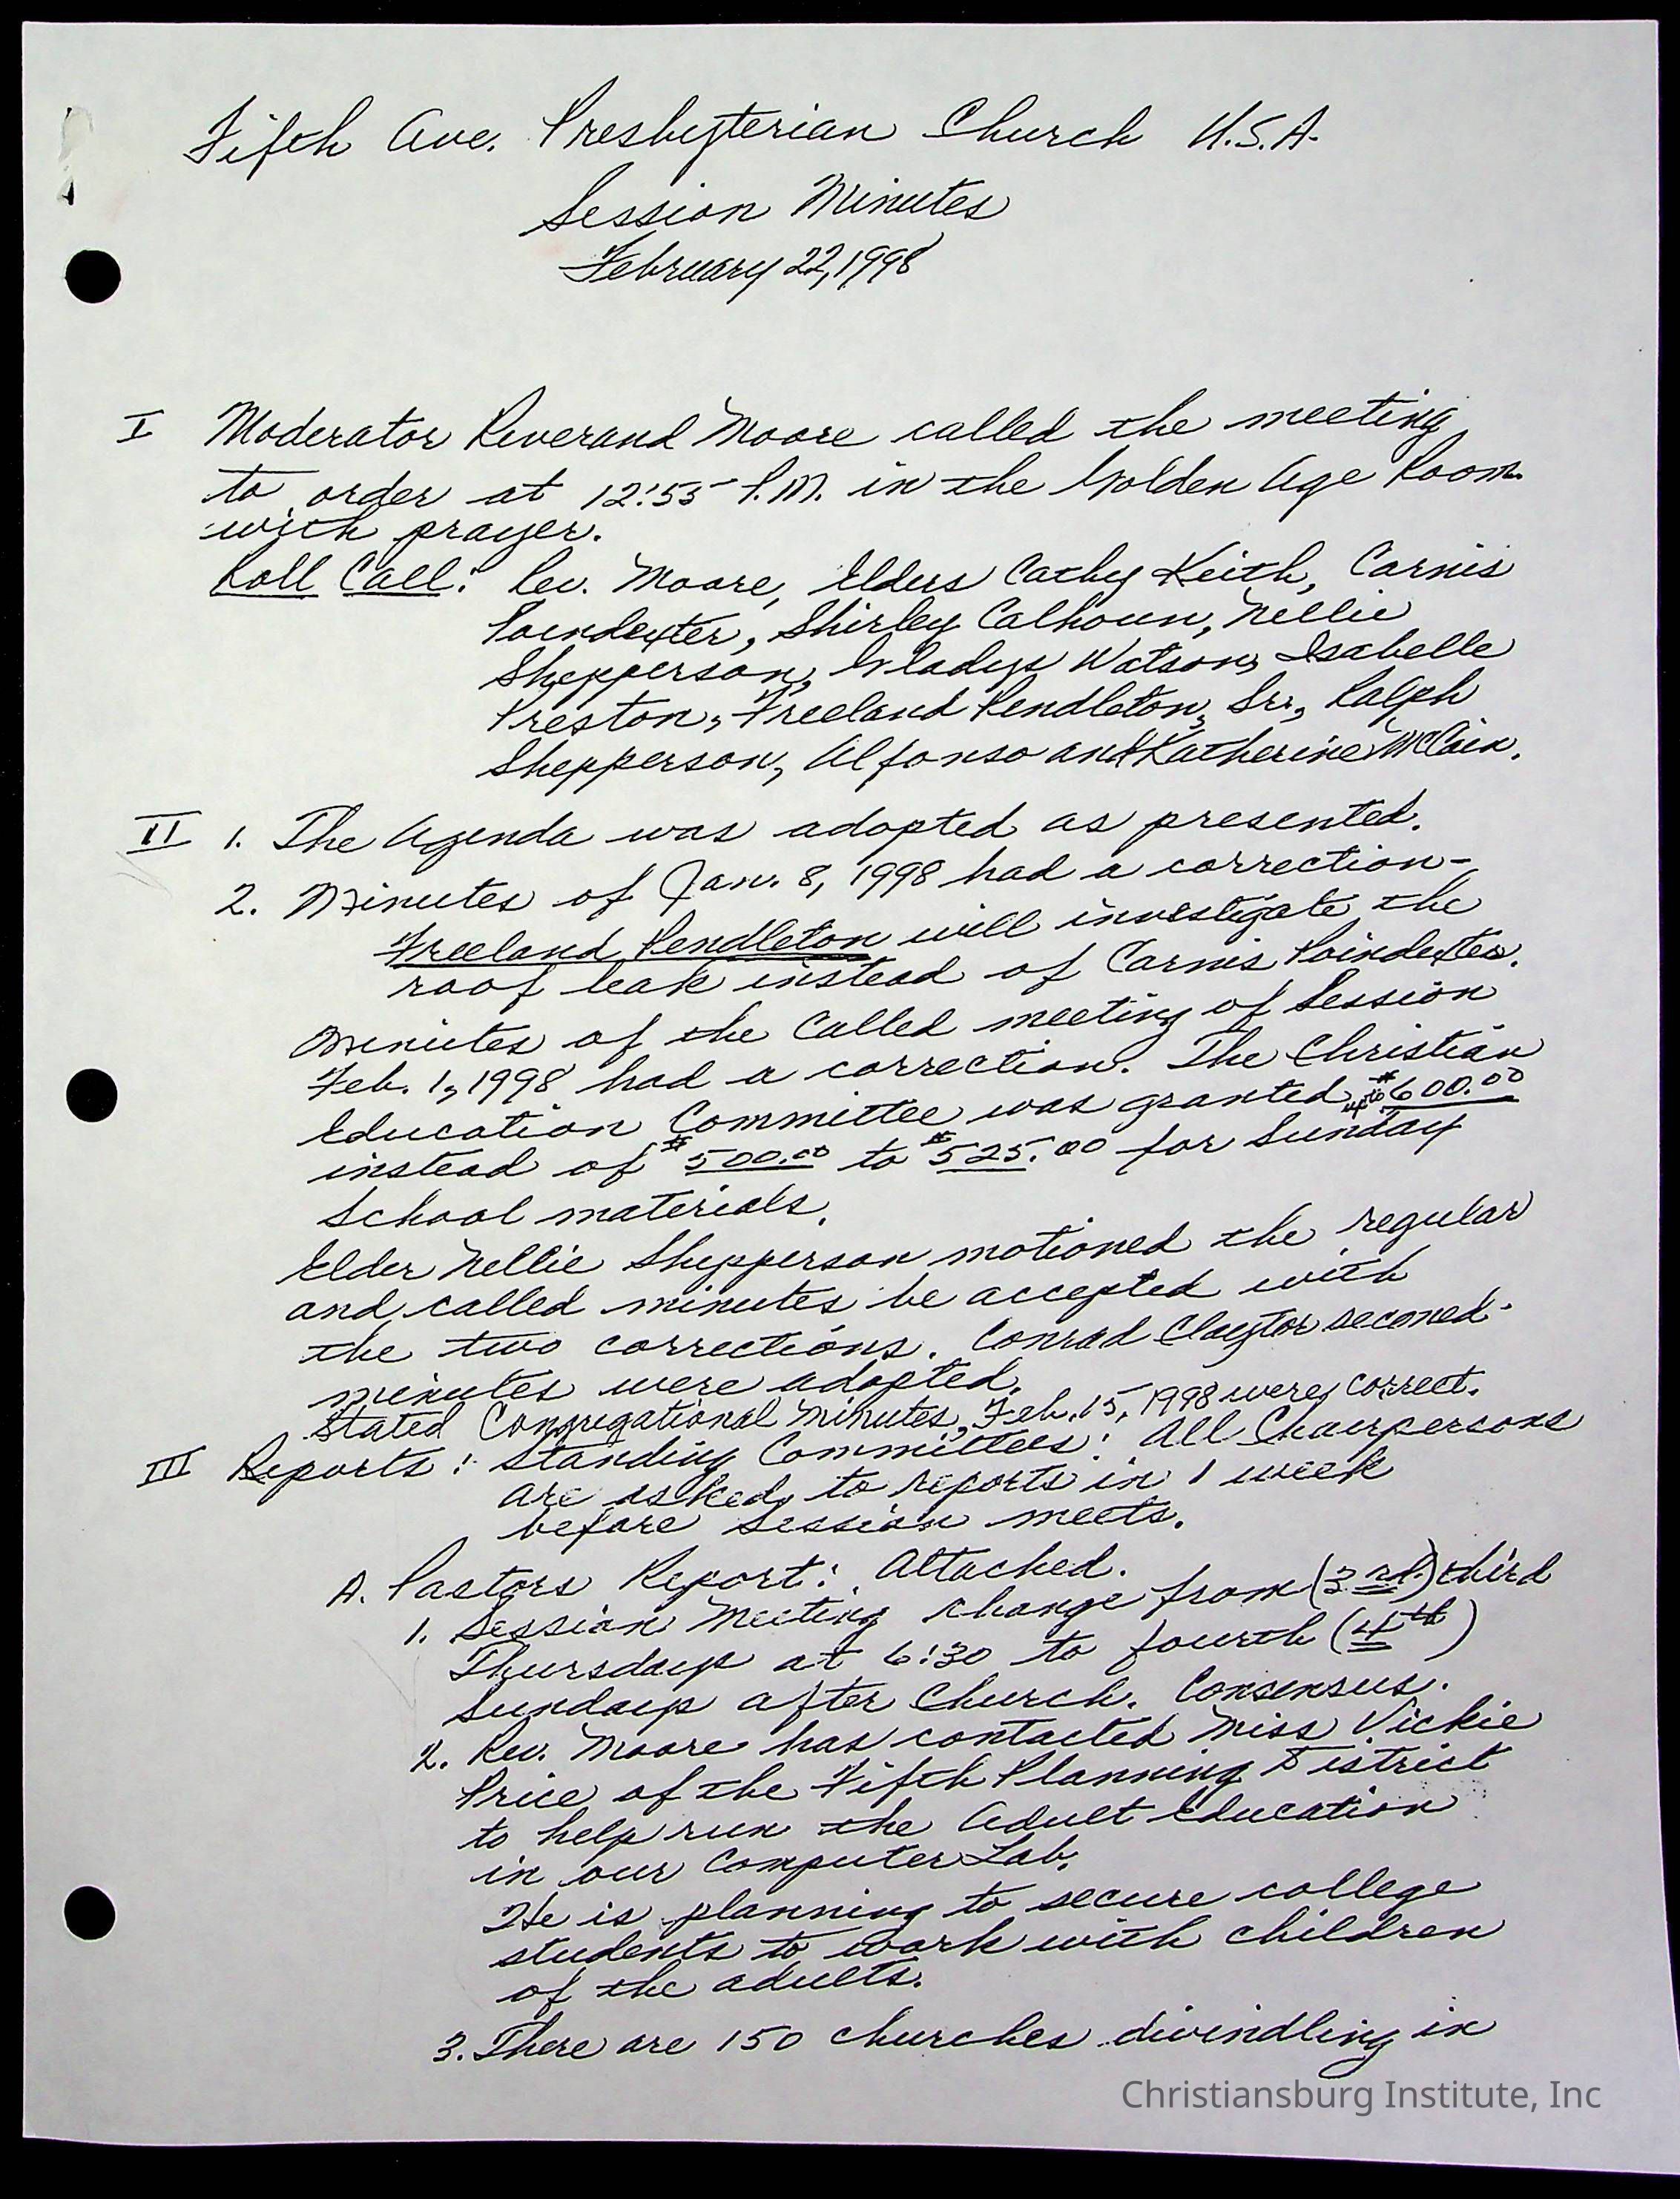 Fifth Ave. Presbyterian Church U.S.A.
Session Minutes
February 22, 1998
I Moderator Reverand Moore called the meeting
to order at 12:55 P.M. in the Golden Age Room
with prayer.
Roll Call: Rev. Moore, Elders Cathy Keith, Carnis
Poindexter, Shirley Calhoun, Nellie
Shepperson, Gladys Watson, Isabelle
Preston, Freeland Pendleton, Sr., Ralph
Shepperson, Alfonso and Katherine McCain.
II 1. The Agenda was adopted as presented.
2. Minutes of Jan. 8, 1998 had a correction-
Freeland Pendleton will investigate the
roof leak instead of Carnis Poindexter.
Minutes of the Called meeting of Session
Feb. 1, 1998 had a correction. The Christian
Education Committee was granted up to $600.00
instead of $500.00 to $525.00 for Sunday
School materials.
Elder Nellie Shepperson motioned the regular
and called minutes be accepted with
the two corrections. Conrad Claytor seconed-
minutes were adopted.
Stated Congregational Minutes, Feb. 15, 1998 were correct.
III Reports: Standing Committees: All Chairpersons
are asked to reports in 1 week
before Session meets.
A. Pastors Report: Attached.
1. Session Meeting change from (3rd.) third
Thursday at 6:30 to fourth (4th)
Sunday after Church. Consensus.
2. Rev. Moore has contacted Miss Vickie
Price of the Fifth Planning District
to help run the Adult Education
in our Computer Lab.
He is planning to secure college
students to work with children
of the adults.
3. There are 150 churches dwindling in
Christiansburg Institute, Inc